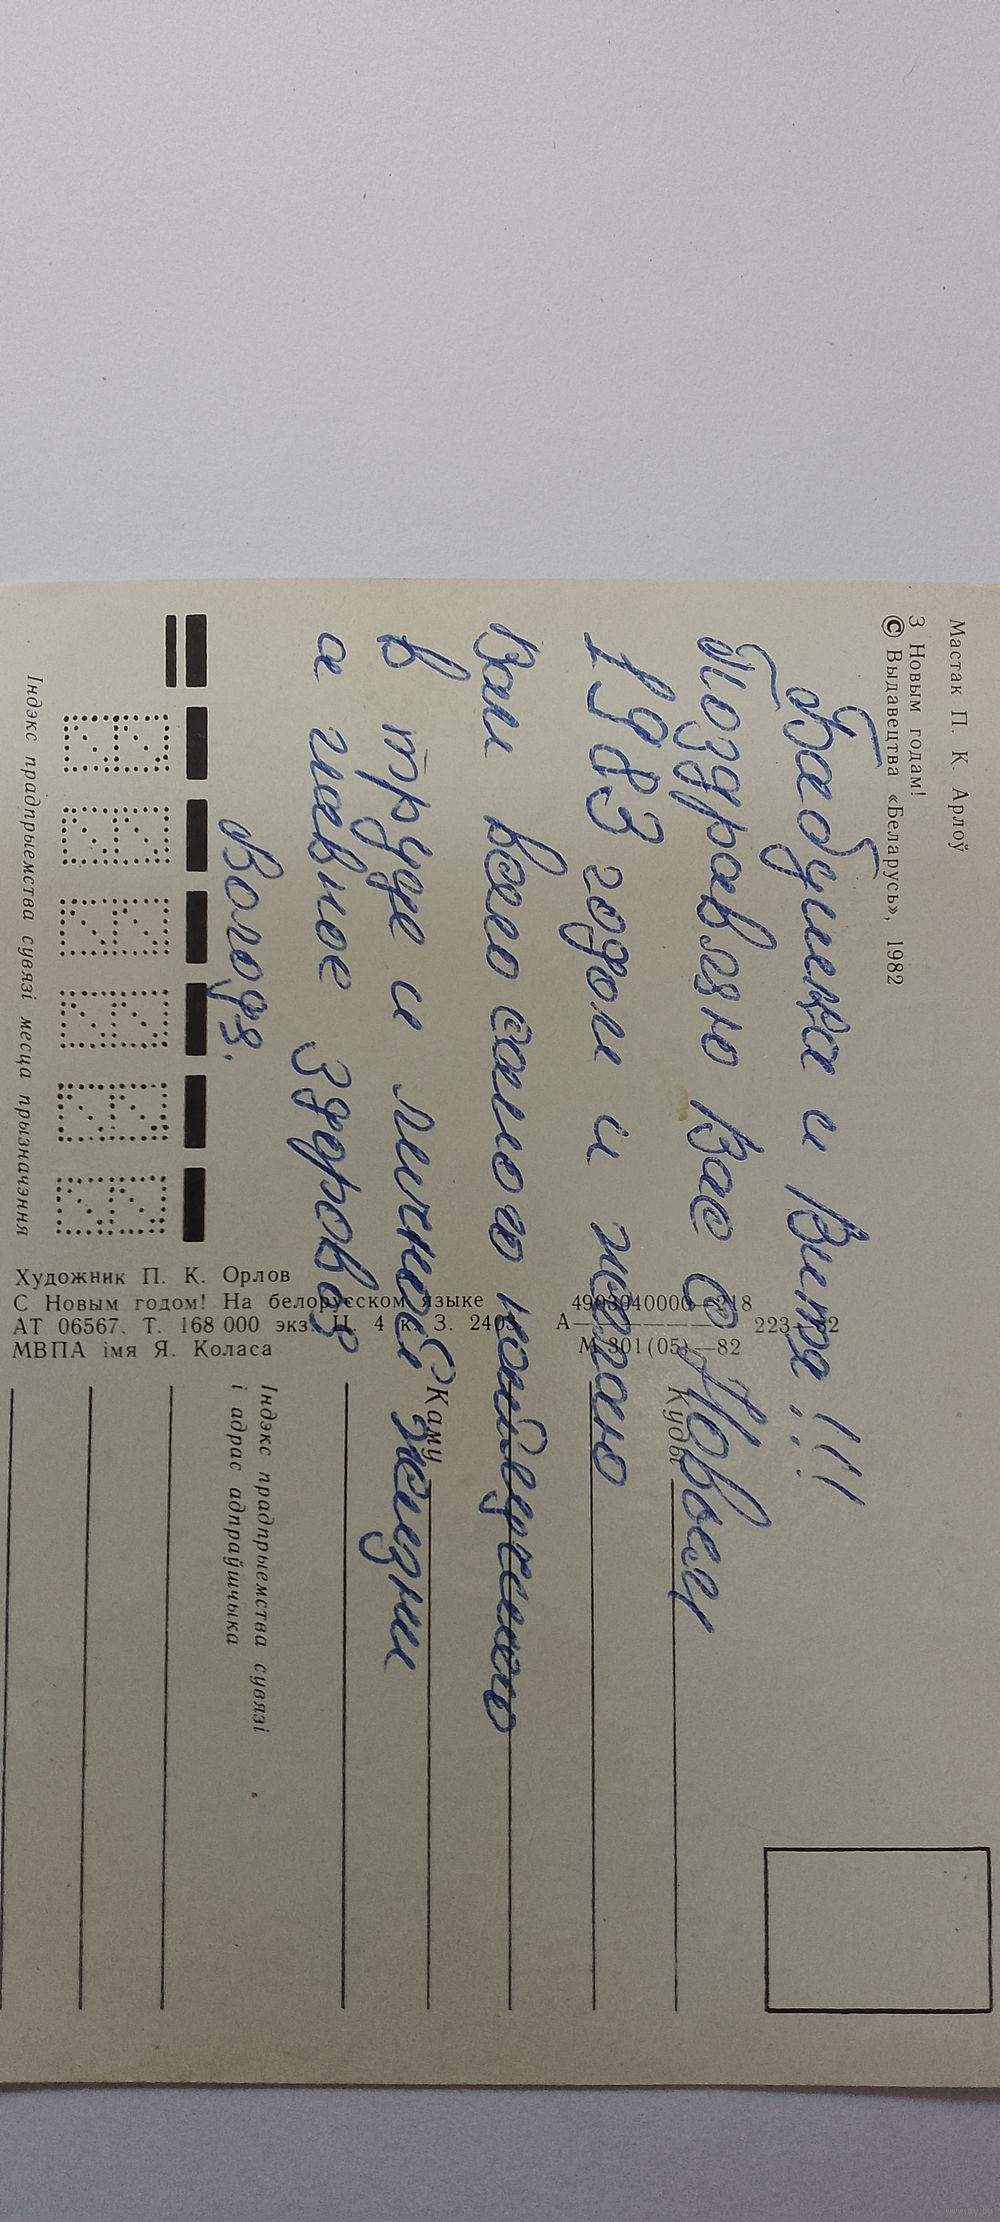 Мастак П. К. Арлоў
З Новым годам!
© Выдавецтва «Беларусь», 1982
Бабушка и Витя!!!
Поздравляю Вас с Новым
1983 годом и желаю
Вам всего самого наилучшего
в труде и личной жизни
а главное здоровья
Володя.
Індэкс прадпрыемства сувязі месца прызначэння
Художник П. К. Орлов
С Новым годом! На белорусском языке
АТ 06567. Т. 168 000 экз. Ц. 4 к. З. 2403
МВПА імя Я. Коласа
4903040000—218
А—————— 223—82
М 301(05)—82
Куды
Каму
Індэкс прадпрыемства сувязі
і адрас адпраўшчыка